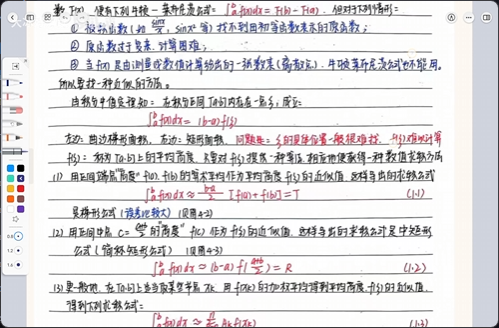 数 F(x), 便有下列牛顿—莱布尼兹公式: ∫_a^b f(x)dx = F(b) - F(a). 但对于下列情形:
① 被积函数 (如 sinx/x, sinx² 等) 找不到用初等函数表示的原函数;
② 原函数过于复杂, 计算困难;
③ 当 f(x) 是由测量或数值计算给出的一张数表 (离散点). 牛顿莱布尼兹公式也不能用.
所以要找一种近似的方法.
由积分中值定理知: 在积分区间 [a,b] 内存在一点 ξ, 成立:
∫_a^b f(x)dx = (b-a)f(ξ)
左边: 曲边梯形面积, 右边: 矩形面积, 问题是: ξ 的具体位置一般很难找, f(ξ) 难以计算
f(ξ): 称为 [a,b] 上的平均高度, 只要对 f(ξ) 提供一种算法, 相应地便获得一种数值求积方法
(1) 用区间端点"高度" f(a), f(b) 的算术平均作为平均高度 f(ξ) 的近似值, 这样导出的求积公式
∫_a^b f(x)dx ≈ (b-a)/2 [f(a)+f(b)] = T (1.1)
是梯形公式 (误差比较大) (见图4-2)
(2) 用区间中点 c = (a+b)/2 的"高度" f(c) 作为 f(ξ) 的近似值, 这样导出的求积公式是中矩形
公式 (简称矩形公式) (见图4-3)
∫_a^b f(x)dx ≈ (b-a) f((a+b)/2) = R (1.2)
(3) 更一般地, 在 [a,b] 上适当取某些节点 xₖ, 用 f(xₖ) 的加权平均得到平均高度 f(ξ) 的近似值,
得到下列求积公式:
∫_a^b f(x)dx ≈ Σ Aₖ f(xₖ) (1.3)